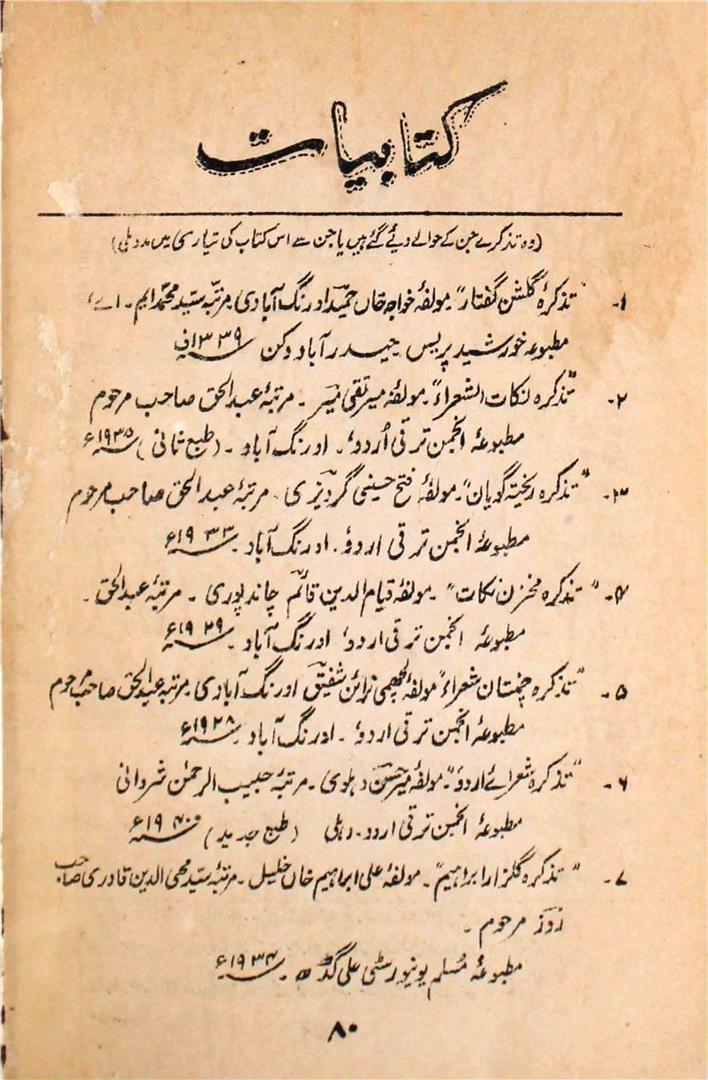 کتابیات
(وہ تذکرے جن کے حوالے دیئے گئے ہیں یا جن سے اس کتاب کی تیاری میں مدد ملی)
۱۔ "تذکرۂ گلشن گفتار"۔ مولفۂ خواجہ خاں حمید اورنگ آبادی مرتبہ سید محمد ایم۔ اے،
مطبوعہ خورشید پریس حیدر آباد دکن ۱۳۳۹ف
۲۔ "تذکرہ نکات الشعراء"۔ مولفۂ میر تقی میر ۔ مرتبۂ عبد الحق صاحب مرحوم
مطبوعۂ انجمن ترقی اُردو، ۔ اورنگ آباد ۔ (طبع ثانی) ۱۹۳۵ء
۳۔ "تذکرہ ریختہ گویان"۔ مولفۂ فتح حسینی گردیزی ۔ مرتبۂ عبد الحق صاحب مرحوم
مطبوعۂ انجمن ترقی اردو، . اورنگ آباد ۔ ۱۹۳۳ء
۴۔ "تذکرہ مخزن نکات" ۔ مولفۂ قیام الدین قائم چاند پوری ۔ مرتبۂ عبد الحق ۔
مطبوعۂ انجمن ترقی اردو، اورنگ آباد ۔ ۱۹۲۹ء
۵۔ "تذکرہ چمنستان شعراء" مولفۂ لچھمی نرائن شفیق اورنگ آبادی مرتبۂ عبد الحق صاحب مرحوم
مطبوعۂ انجمن ترقی اردو، ۔ اورنگ آباد ۔ ۱۹۲۸ء
۶۔ "تذکرہ شعرائے اردو"۔ مولفۂ میر حسن دہلوی ۔ مرتبۂ حبیب الرحمٰن شروانی
مطبوعۂ انجمن ترقی اردو . دہلی (طبع جدید) ۱۹۴۰ء
۷۔ "تذکرہ گلزار ابراہیم"۔ مولفۂ علی ابراہیم خاں خلیل ۔ مرتبۂ سید محی الدین قادری صاحب
زور مرحوم ۔
مطبوعۂ مُسلم یونیورسٹی علی گڑھ ۔ ۱۹۳۴ء
۸۰